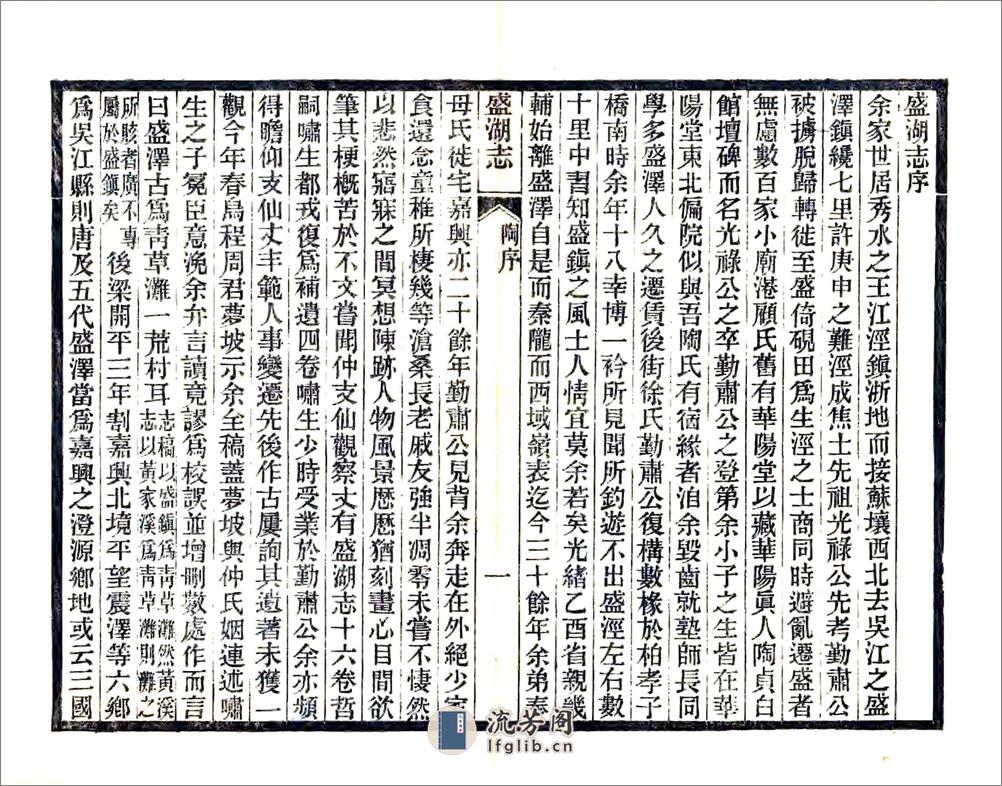 盛湖志序
余家世居秀水之王江涇鎮浙地而接蘇壤西北去吳江之盛
澤鎮纔七里許庚申之難涇成焦土先祖光祿公先考勤肅公
被擄脫歸轉徙至盛倚硯田爲生涇之士商同時避亂遷盛者
無慮數百家小廟港顧氏舊有華陽堂以藏華陽眞人陶貞白
館壇碑而名光祿公之卒勤肅公之登第余小子之生皆在華
陽堂東北偏院似與吾陶氏有宿緣者洎余毀齒就塾師長同
學多盛澤人久之遷賃後街徐氏勤肅公復構數椽於柏孝子
橋南時余年十八幸博一衿所見聞所釣遊不出盛涇左右數
十里中習知盛鎮之風土人情宜莫余若矣光緒乙酉省親幾
輔始離盛澤自是而秦隴而西域嶺表迄今三十餘年余弟奉
盛湖志
陶序
一
母氏徙宅嘉興亦二十餘年勤肅公見背余奔走在外絕少家
食還念童稚所棲幾等滄桑長老戚友強半凋零未嘗不悽然
以悲然寤寐之間冥想陳跡人物風景歷歷猶刻畫心目間欲
筆其梗概苦於不文嘗聞仲支仙觀察丈有盛湖志十六卷哲
嗣嘯生都戎復爲補遺四卷嘯生少時受業於勤肅公余亦頻
得瞻仰支仙丈丰範人事變遷先後作古屢詢其遺著未獲一
觀今年春烏程周君夢坡示余至稿蓋夢坡與仲氏姻連述嘯
生之子冕臣意浼余弁言讀竟謬爲校誤並增刪數處作而言
曰盛澤古爲靑草灘一荒村耳志稿以盛鎮爲靑草灘然黃溪志以黃家溪爲靑草灘則灘之
所賅者廣不專屬於盛鎮矣後梁開平三年割嘉興北境平望震澤等六鄉
爲吳江縣則唐及五代盛澤當爲嘉興之澄源鄉地或云三國
流芳阁
lfglib.cn